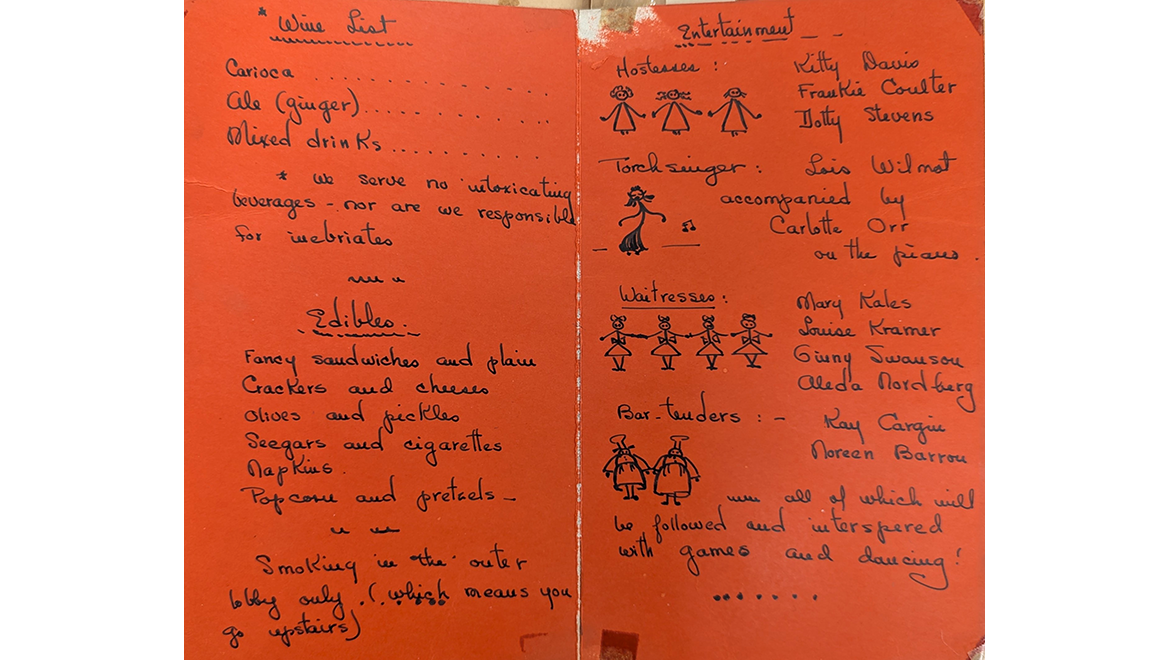 * Wine List
Carioca ..............
Ale (ginger)..............
Mixed drinks ...........
* we serve no intoxicating
beverages - nor are we responsible
for inebriates
Edibles.
Fancy sandwiches and plain
Crackers and cheeses
Olives and pickles
Seegars and cigarettes
Napkins.
Popcorn and pretzels -
Smoking in the outer
lobby only. (which means you
go upstairs)
Entertainment
Hostesses : Kitty Davis
Frankie Coulter
Dotty Stevens
Torchsinger : Lois Wilmot
accompanied by
Carlotte Orr
on the piano.
Waitresses : Mary Kales
Louise Kramer
Ginny Swanson
Aleda Nordberg
Bar-tenders : - Kay Cargin
Noreen Barron
all of which will
be followed and interspered
with games and dancing!